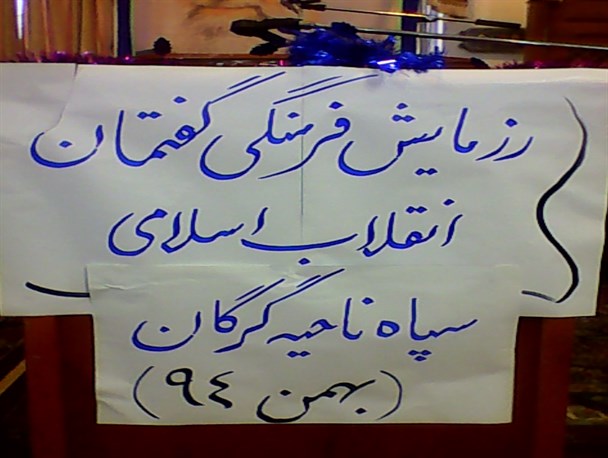 رزمایش فرهنگی گفتمان
انقلاب اسلامی
سپاه ناحیه گرگان
(بهمن ۹٤)